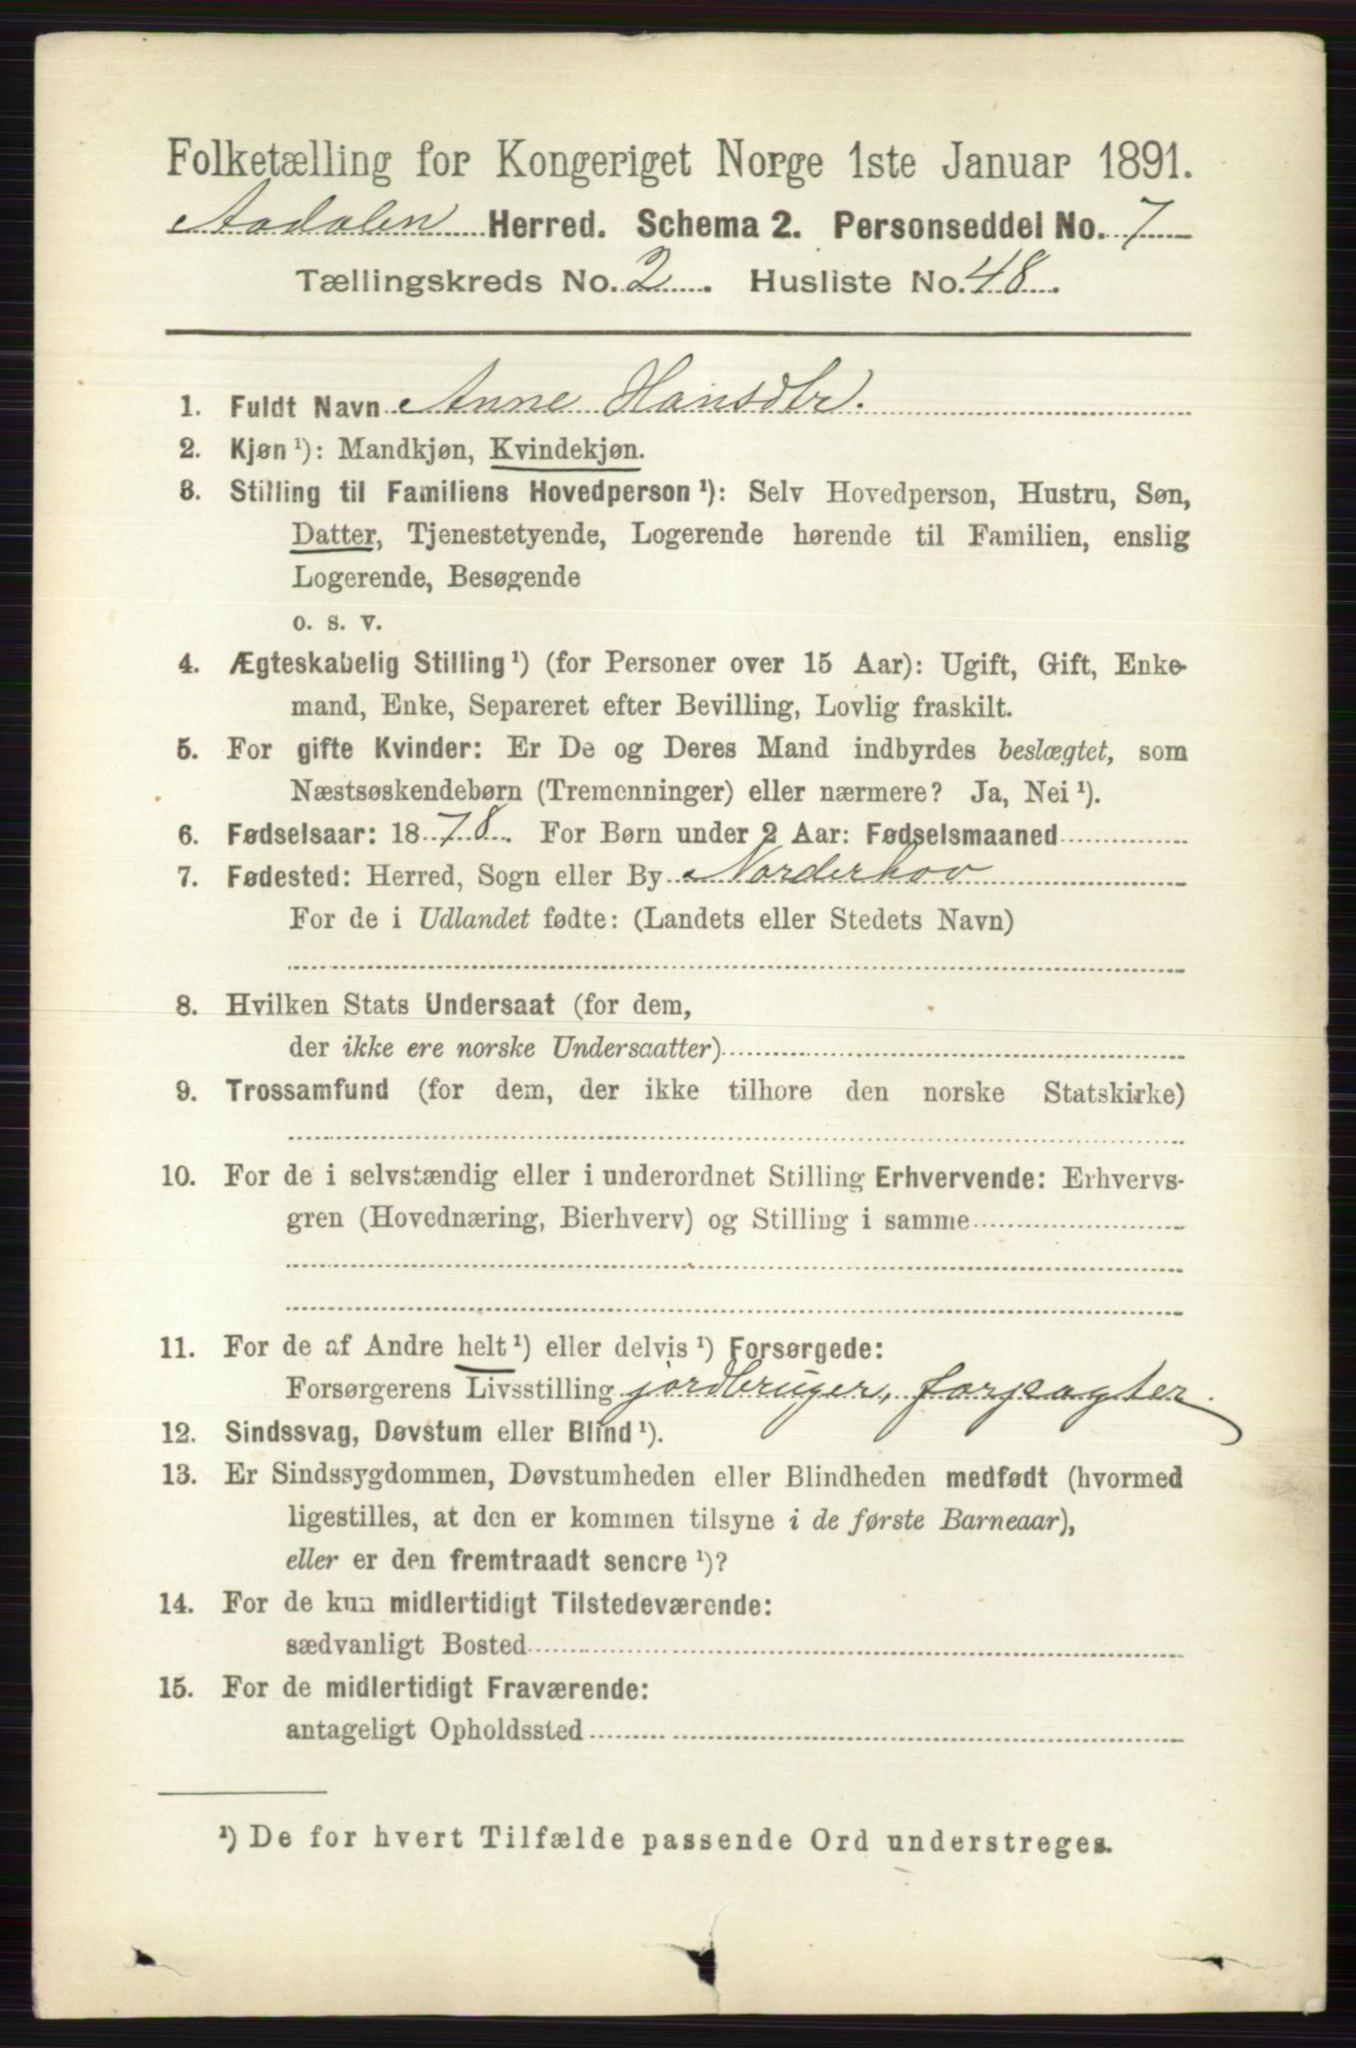 Folketælling for Kongeriget Norge 1ste Januar 1891.
Aadalen Herred. Schema 2. Personseddel No. 7
Tællingskreds No. 2. Husliste No. 48.
1. Fuldt Navn Anne Hansdtr.
2. Kjøn ¹): Mandkjøn, Kvindekjøn.
3. Stilling til Familiens Hovedperson ¹): Selv Hovedperson, Hustru, Søn,
Datter, Tjenestetyende, Logerende hørende til Familien, enslig
Logerende, Besøgende
o. s. v.
4. Ægteskabelig Stilling ¹) (for Personer over 15 Aar): Ugift, Gift, Enke-
mand, Enke, Separeret efter Bevilling, Lovlig fraskilt.
5. For gifte Kvinder: Er De og Deres Mand indbyrdes beslægtet, som
Næstsøskendebørn (Tremenninger) eller nærmere? Ja, Nei ¹).
6. Fødselsaar: 1878. For Børn under 2 Aar: Fødselsmaaned
7. Fødested: Herred, Sogn eller By Norderhov
For de i Udlandet fødte: (Landets eller Stedets Navn)
8. Hvilken Stats Undersaat (for dem,
der ikke ere norske Undersaatter)
9. Trossamfund (for dem, der ikke tilhore den norske Statskirke)
10. For de i selvstændig eller i underordnet Stilling Erhvervende: Erhvervs-
gren (Hovednæring, Bierhverv) og Stilling i samme
11. For de af Andre helt ¹) eller delvis ¹) Forsørgede:
Forsørgerens Livsstilling jordbruger, forpagter.
12. Sindssvag, Døvstum eller Blind ¹).
13. Er Sindssygdommen, Døvstumheden eller Blindheden medfødt (hvormed
ligestilles, at den er kommen tilsyne i de første Barneaar),
eller er den fremtraadt senere ¹)?
14. For de kun midlertidigt Tilstedeværende:
sædvanligt Bosted
15. For de midlertidigt Fraværende:
antageligt Opholdssted
¹) De for hvert Tilfælde passende Ord understreges.